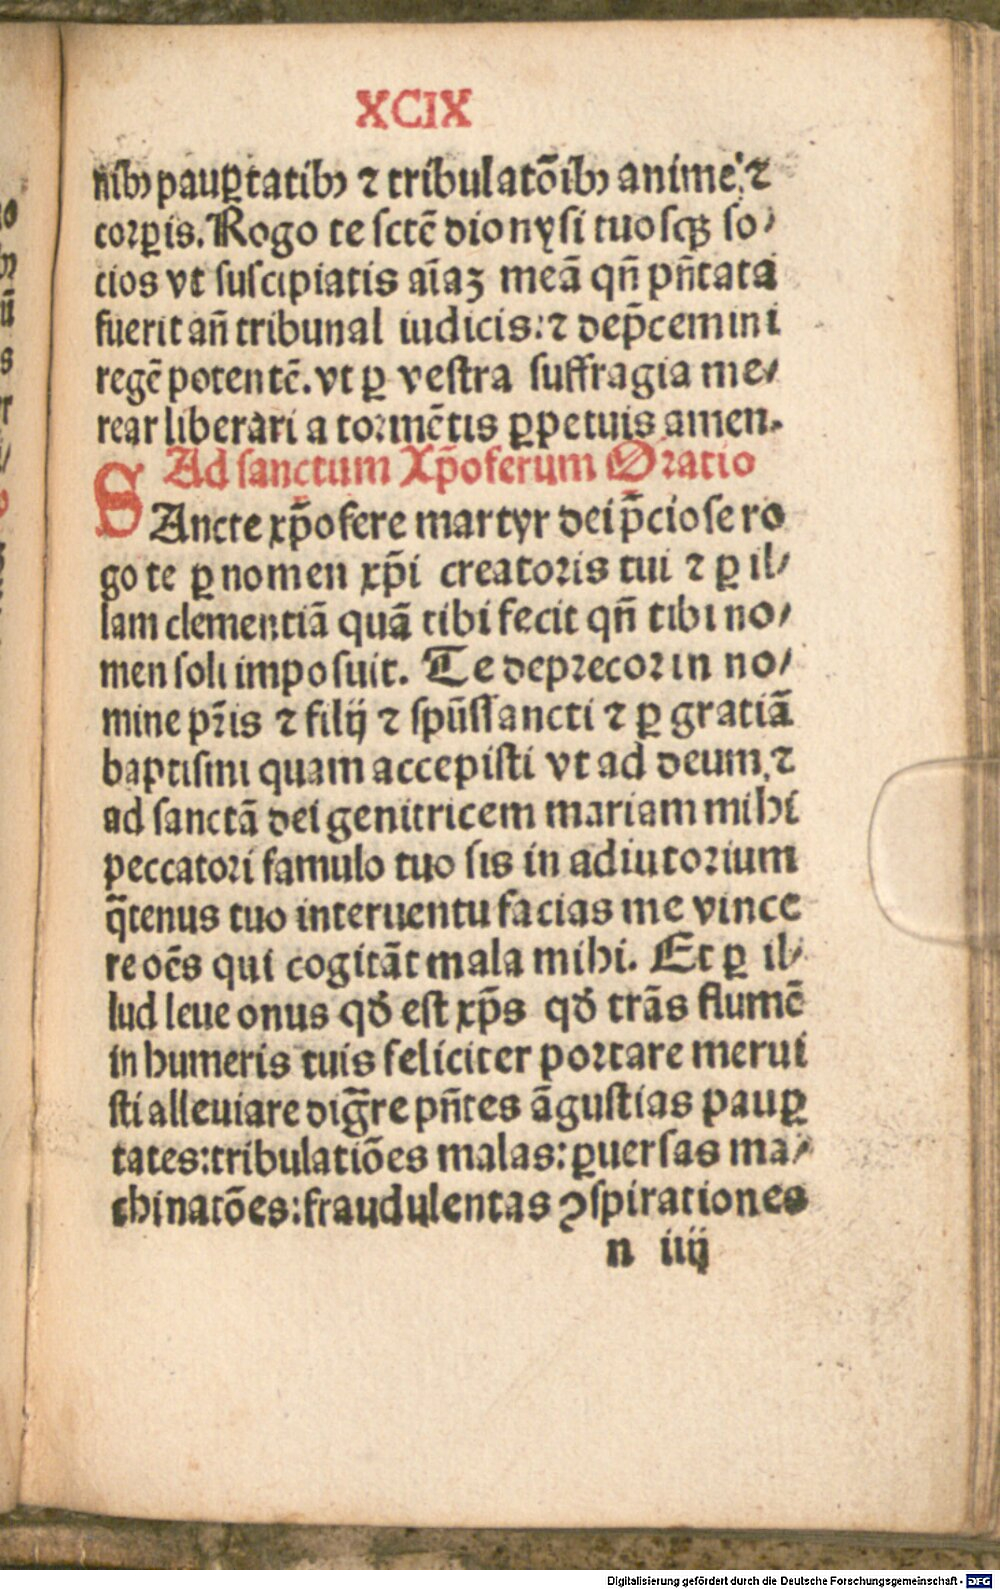 XCIX
nibꝰ paupꝑtatibꝰ ⁊ tribulatōibꝰ anime: ⁊
corꝑis. Rogo te sctē dionysi tuosqꝫ so⸗
cios vt suscipiatis aīaꝫ meā qn̄ pn̄tata
fuerit an̄ tribunal iudicis: ⁊ dep̄cemini
regē potentē. vt ꝑ vestra suffragia me⸗
rear liberari a tormētis ꝑpetuis amen.
Ad sanctum Xp̄oferum Oratio
SAncte xp̄ofere martyr dei p̄ciose ro
go te ꝑ nomen xp̄i creatoris tui ⁊ ꝑ il⸗
lam clementiā quā tibi fecit qn̄ tibi no⸗
men soli imposuit. Te deprecor in no⸗
mine pr̄is ⁊ filij ⁊ spūssancti ⁊ ꝑ gratiā
baptismi quam accepisti vt ad deum, ⁊
ad sanctā dei genitricem mariam mihi
peccatori famulo tuo sis in adiutorium
q̄tenus tuo interuentu facias me vince
re oēs qui cogitāt mala mihi. Et ꝑ il⸗
lud leue onus qđ est xp̄s qđ trās flumē
in humeris tuis feliciter portare merui
sti alleuiare diḡre pn̄tes āgustias pauꝑ
tates: tribulatiōes malas: ꝑuersas ma⸗
chinatōes: fraudulentas ꝯspirationes
n iiij
Digitalisierung gefördert durch die Deutsche Forschungsgemeinschaft - DFG